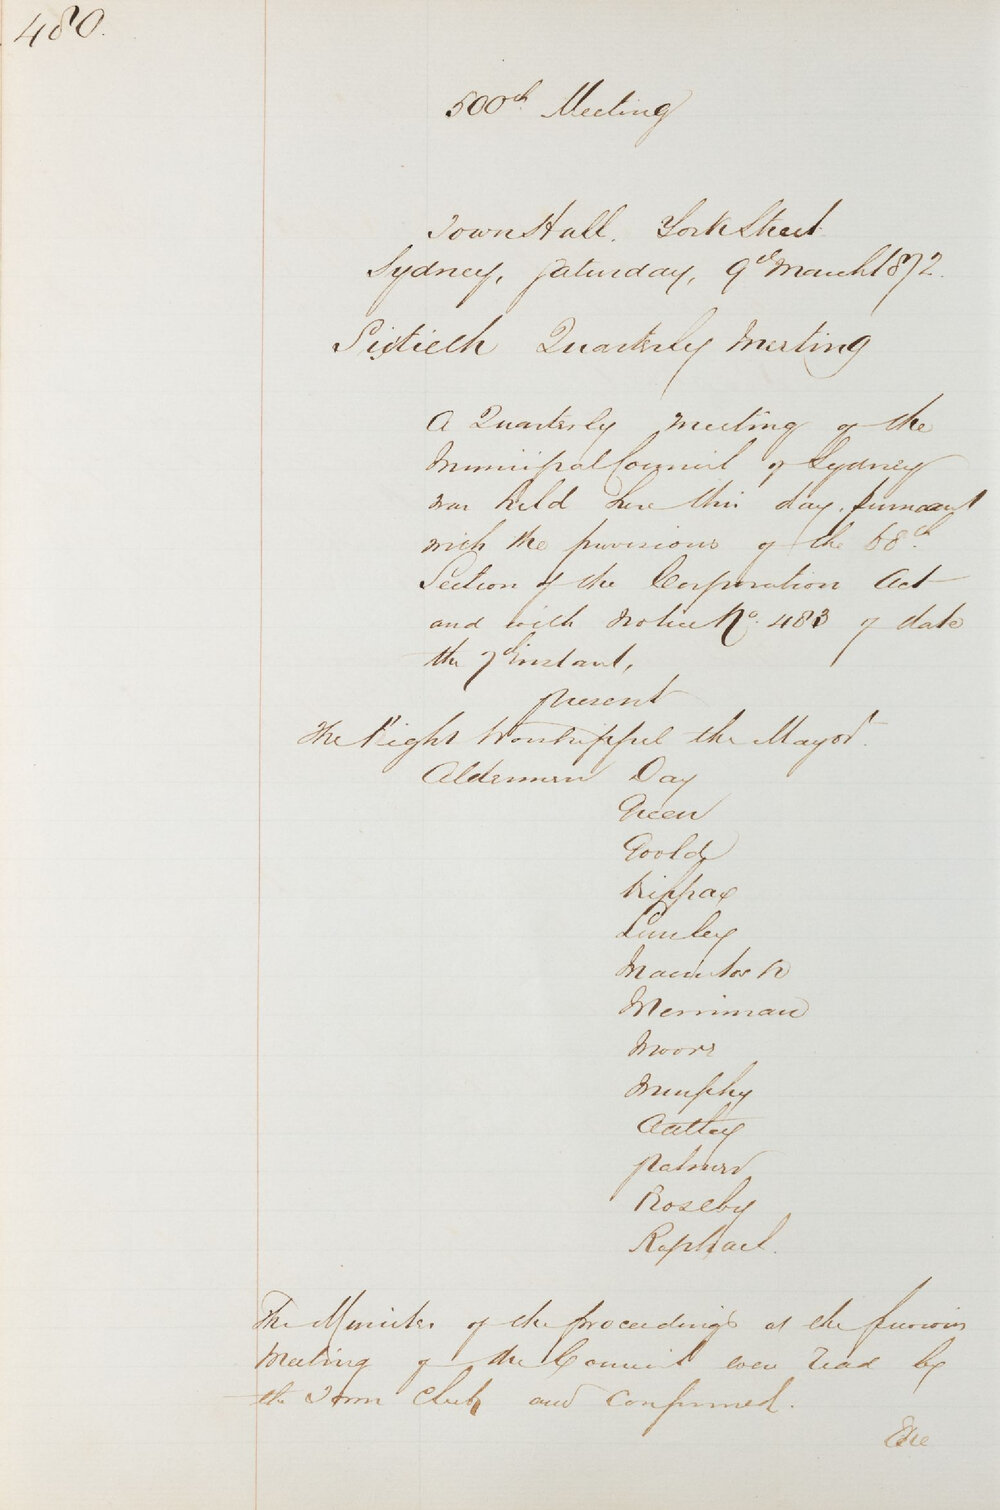 480.
500th Meeting
Town Hall. York Street
Sydney, Saturday, 9th March 1872.
Sixtieth Quarterly Meeting
A Quarterly Meeting of the
Municipal Council of Sydney
was held here this day, pursuant
with the provisions of the 68th
Section of the Corporation Act
and with Notice No. 483 of date
the 7th Instant,
present
The Right Worshipful the Mayor.
Aldermen Day
Green
Goold
Kippax
Lumley
Macintosh
Merriman
Moore
Murphy
Oatley
Palmer
Roseby
Raphael.
The Minutes of the proceedings at the previous
Meeting of the Council were read by
the Town Clerk and Confirmed.
The